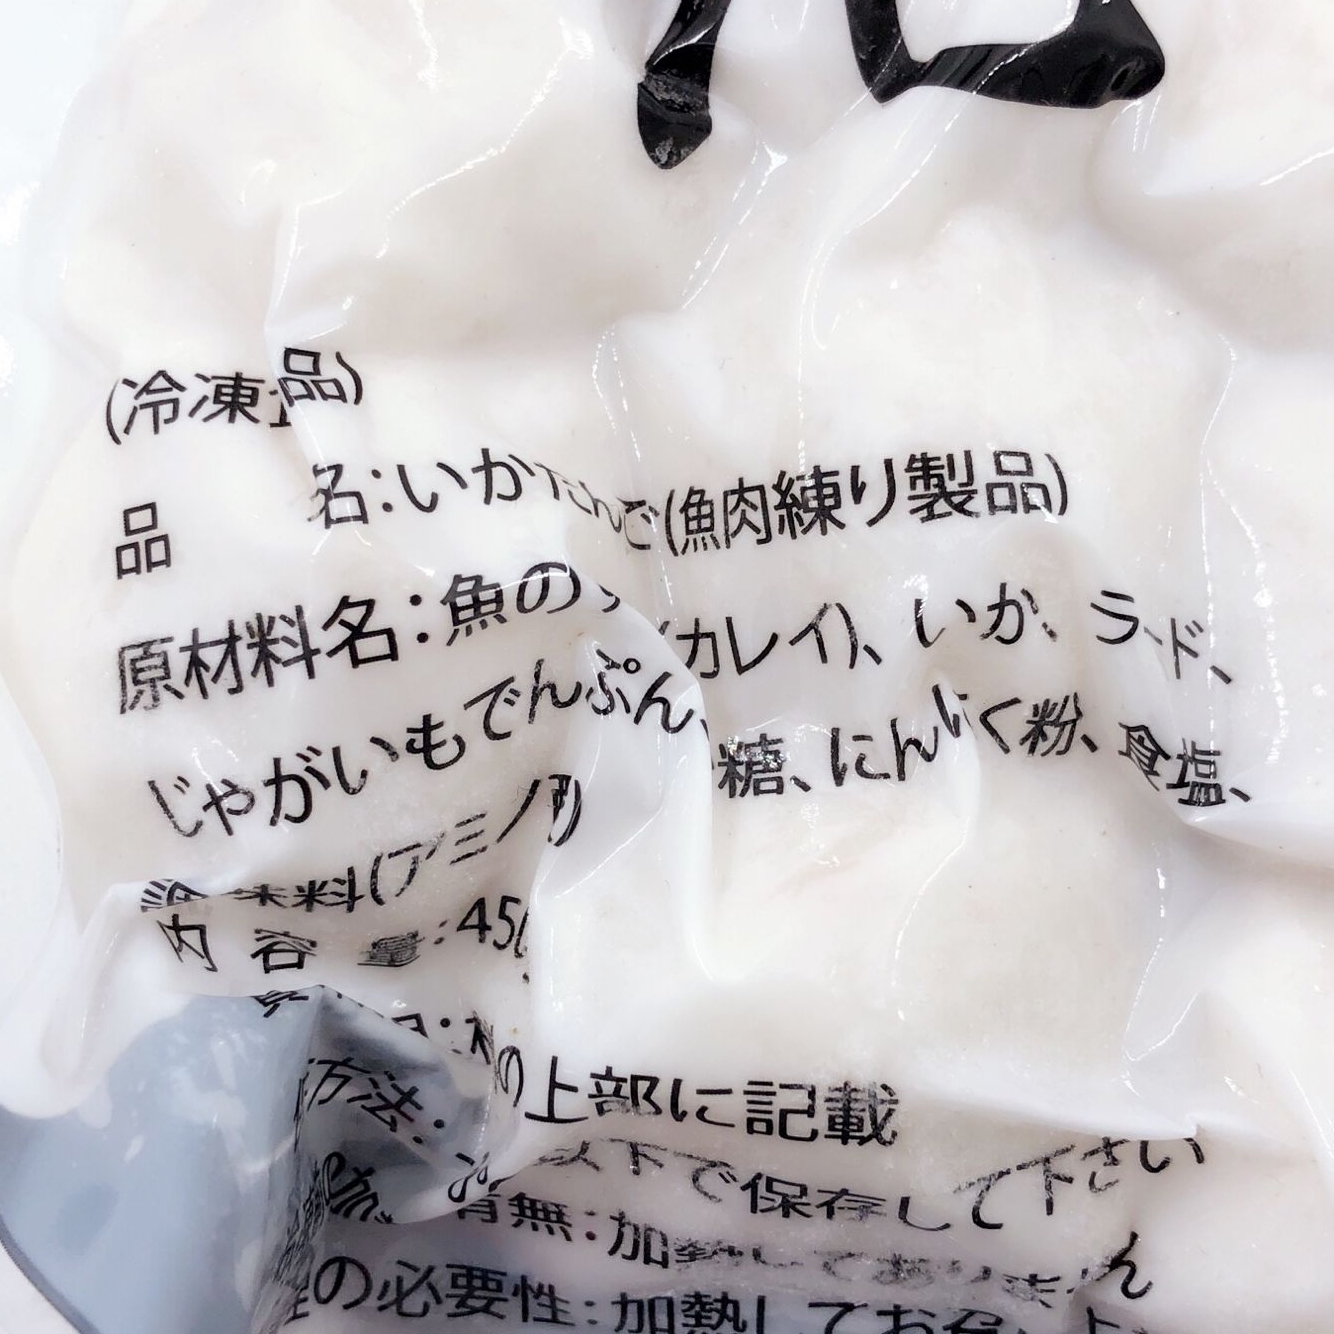 (冷凍食品)
品 名:いかだんご(魚肉練り製品)
原材料名:魚のすり身(カレイ)、いか、ラード、
じゃがいもでんぷん、砂糖、にんにく粉、食塩、
調味料(アミノ酸)
内 容 量:450
の上部に記載
以下で保存して下さい
有無:加熱してありません
の必要性:加熱してお召し上